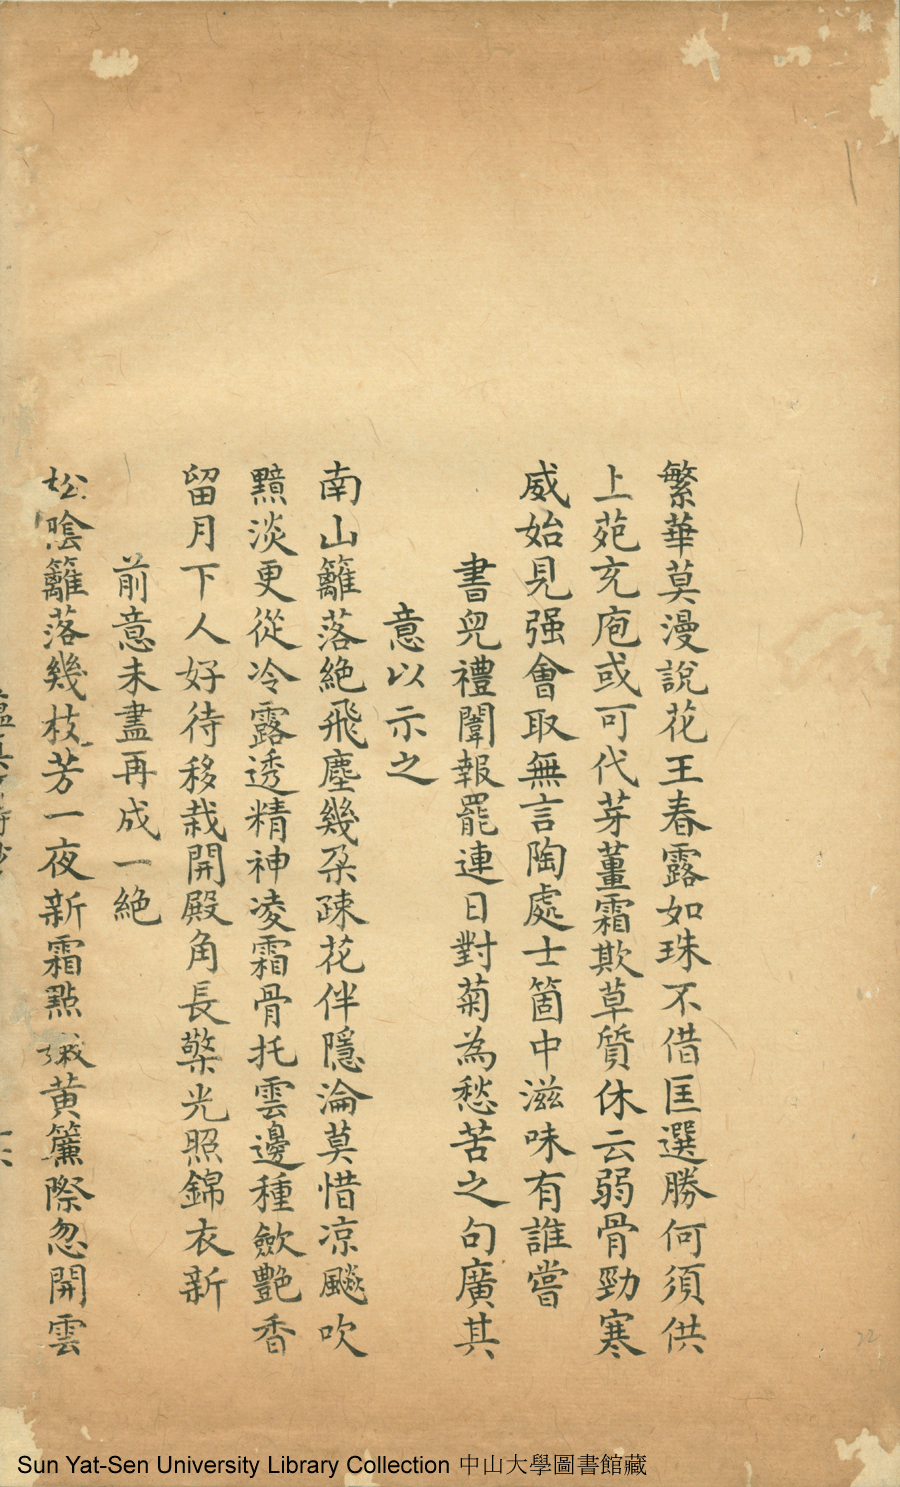 繁華莫漫說花王春露如珠不借匡選勝何須供
上苑充庖或可代芽薑霜欺草質休云弱骨勁寒
威始見强會取無言陶處士箇中滋味有誰嘗
書兕禮闈報罷連日對菊為愁苦之句廣其
意以示之
南山籬落絕飛塵幾朶疎花伴隱淪莫惜凉飈吹
黯淡更從冷露透精神凌霜骨托雲邊種斂艷香
留月下人好待移栽開殿角長檠光照錦衣新
前意未盡再成一絕
松陰籬落幾枝芳一夜新霜點黃簾際忽開雲
Sun Yat-Sen University Library Collection 中山大學圖書館藏